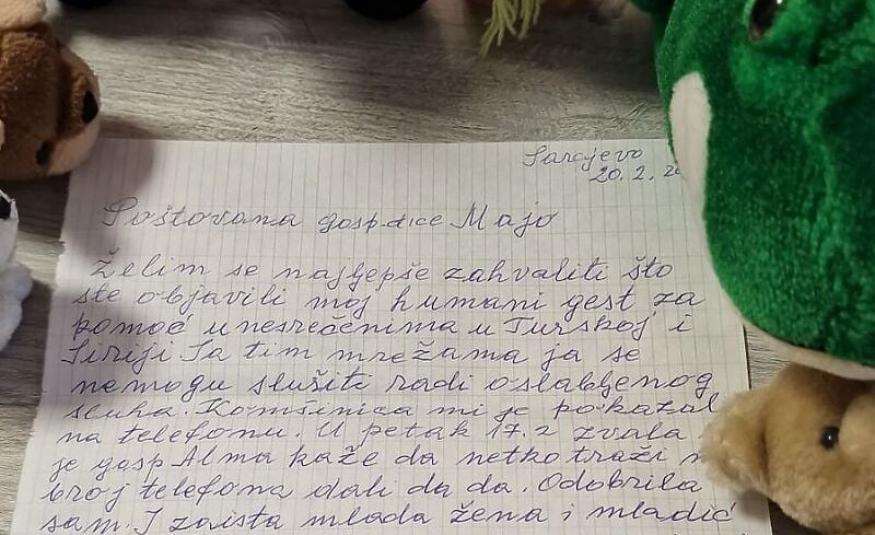 Sarajevo
20.2.
Poštovana gosp-dice Majo
Želim se najljepše zahvaliti što
ste objavili moj humani gest za
pomoć unesrečenima u Turskoj i
Siriji Sa tim mrežama ja se
nemogu služiti radi oslabljenog
sluha. Komšinica mi je pokazal
na telefonu. U petak 17.2 zvala
je gosp Alma kaže da netko traži
broj telefona dali da da. Odobrila
sam. I zaista mlada žena i mladić